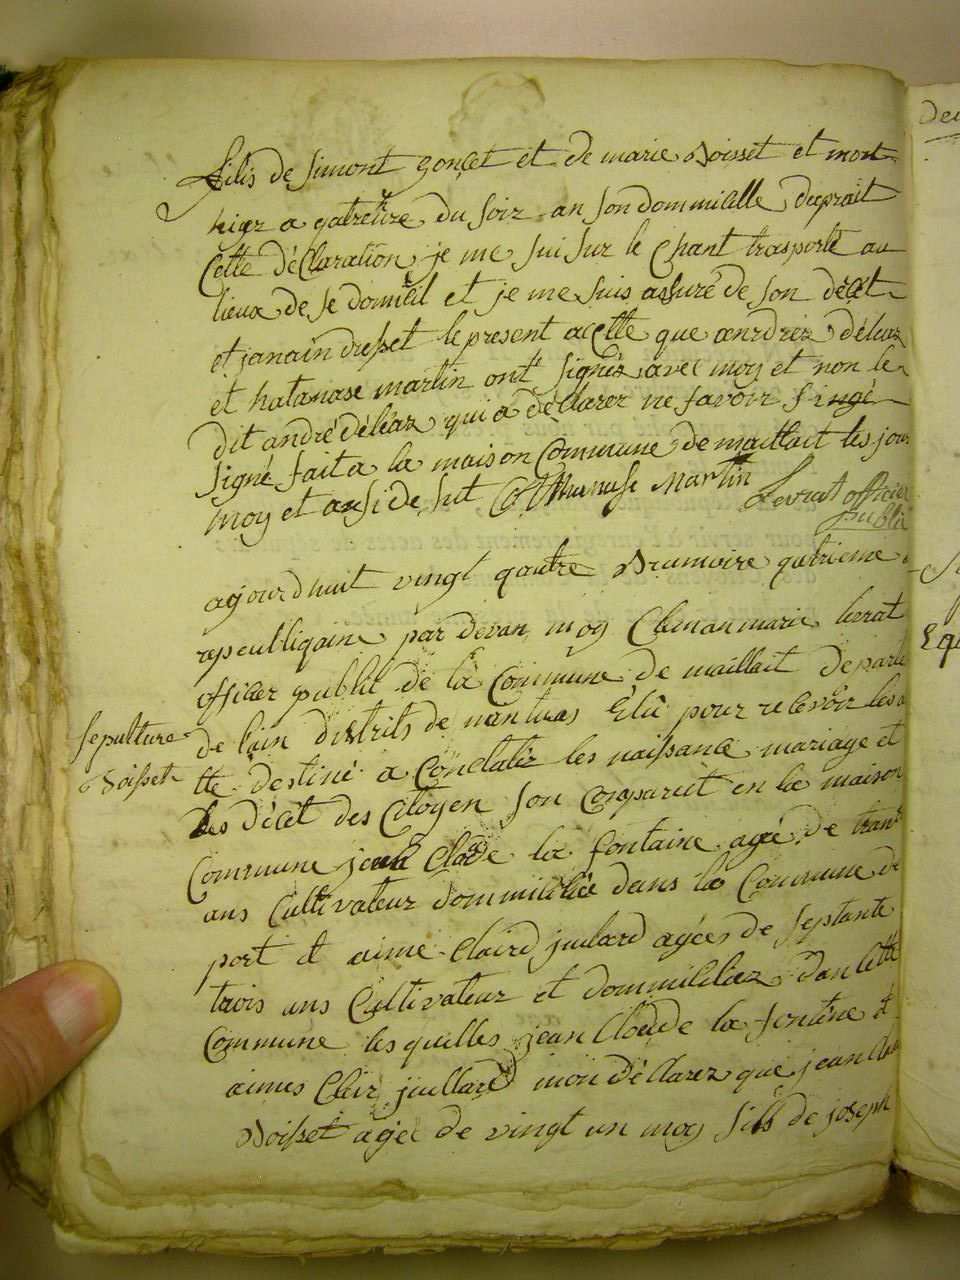 filis de simont goncet et de marie Boisset et mort
hier a quatreure du soir an son dommicille daprait
Cette déClaration je me sui sur le Chant trasporte au
lieux de se domicil et je me suis assuré de son decet
et janain dresset le present acette que andrez déléaz
et hatanase martin ont signéz avec moy et non le
dit andré déléaz qui a déClarez ne savoir singé
signé fait a la maison Commune de maillait les jour
moy et ansi de sut Athanase Martin Levrat officier
public
ajourdhuit vingt qautre Brumoire qatrieme
repeubliqaine par devan moy Clemanmarie levrat
officier public de la Commune de maillait departe
de lain distrits de nantuas Elu pour recevoir les a
tte destiné a Constatéz les naissance mariage et
les décet des Citoyen son Comparut en la maison
Commune jean Claode la fontaine ageé de trant
ans Cultivateur dommiciliée dans la Commune de
port et aime Claird juilard agées de septante
trois ans Cultivateur et dommiciliez dan Cette
Commune les quelles jean Cloude la fontene et
aimes Clair juillard mon déClarez que jean Clau
Boisset ageé de vingt un moy fils de joseph
sepulture
Boisset